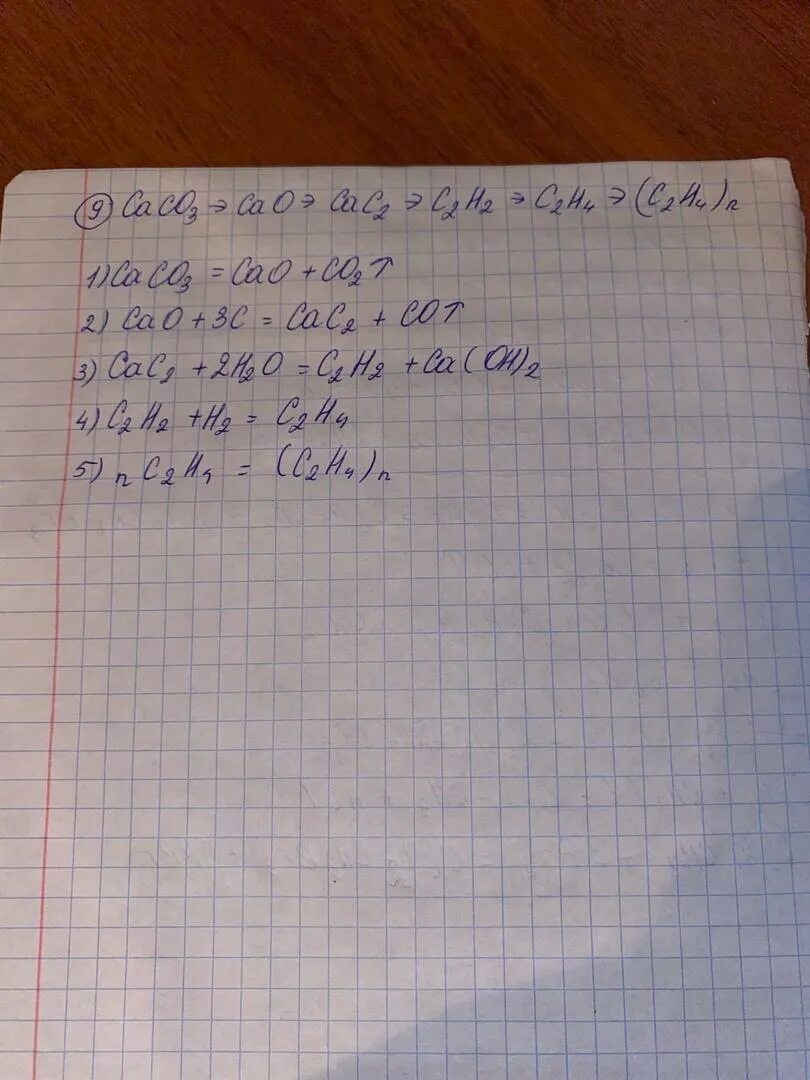 9) CaCO₃ → CaO → CaC₂ → C₂H₂ → C₂H₄ → (C₂H₄)n
1) CaCO₃ = CaO + CO₂↑
2) CaO + 3C = CaC₂ + CO↑
3) CaC₂ + 2H₂O = C₂H₂ + Ca(OH)₂
4) C₂H₂ + H₂ = C₂H₄
5) nC₂H₄ = (C₂H₄)n